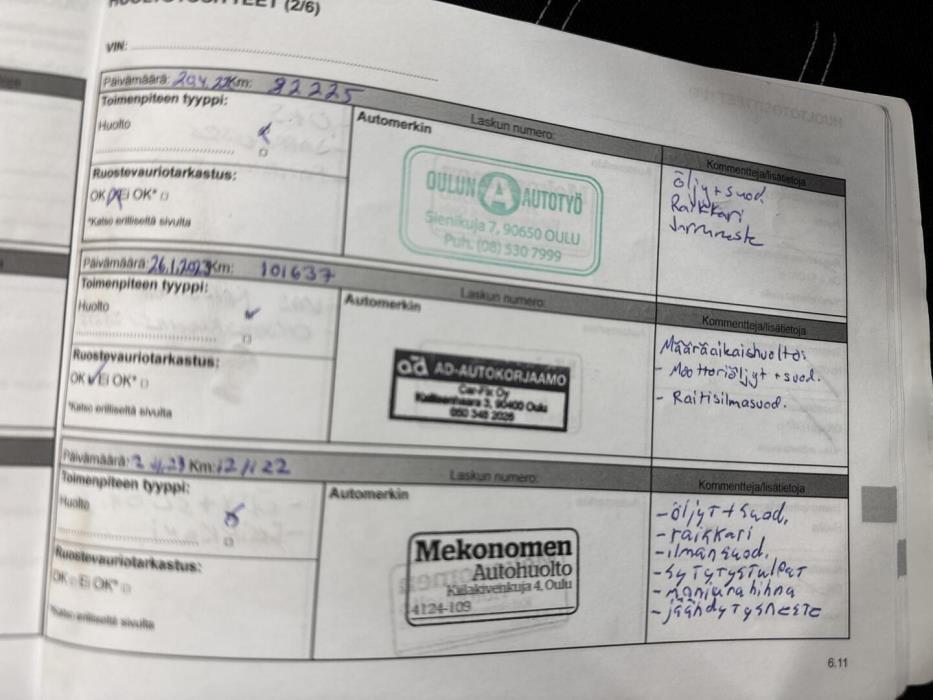 HUOLTOTOSITTEET (2/6)
VIN:
Päivämäärä: 20.4.22 Km: 82225
Toimenpiteen tyyppi:
Huolto
Ruostevauriotarkastus:
OK Ei OK*
*Katso erilliseltä sivulta
Laskun numero:
Automerkin
OULUN A AUTOTYÖ
Sienikuja 7, 90650 OULU
Puh. (08) 530 7999
Kommentteja/lisätietoja
Öljy + suod.
Raikkari
Jarruneste
Päivämäärä: 26.1.2023 Km: 101637
Toimenpiteen tyyppi:
Huolto
Ruostevauriotarkastus:
OK Ei OK*
*Katso erilliseltä sivulta
Laskun numero:
Automerkin
ad AD-AUTOKORJAAMO
Car-Fix Oy
90400 Oulu
Kommentteja/lisätietoja
Määräaikaishuolto:
- Moottoriöljyt + suod.
- Raitisilmasuod.
Päivämäärä: Km: 121122
Toimenpiteen tyyppi:
Huolto
Ruostevauriotarkastus:
OK Ei OK*
*Katso erilliseltä sivulta
Laskun numero:
Automerkin
Mekonomen
Autohuolto
Kiilakivenkuja 4, Oulu
4124-109
Kommentteja/lisätietoja
- öljyt + suod.
- raikkari
- ilmansuod.
- sytytystulpat
- moniurahihna
- jäähdytysneste
6.11